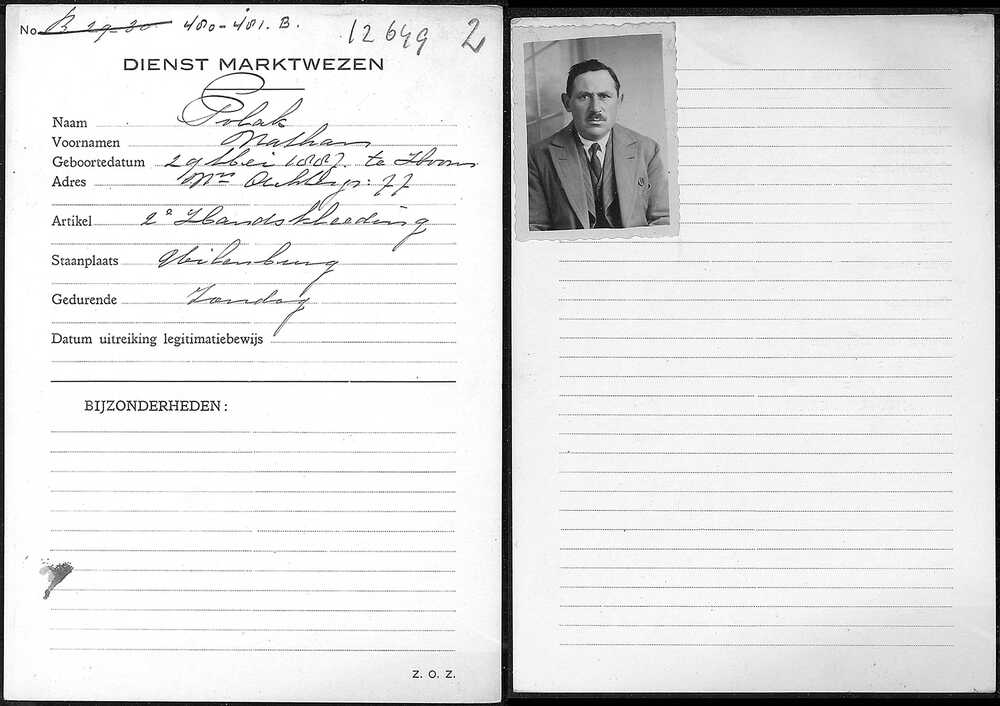 No. B 29-30 480-481. B. 12649 2
DIENST MARKTWEZEN
Naam Polak
Voornamen Nathan
Geboortedatum 29 Mei 1887. te Hoorn
Adres 77
Artikel 2e Handskleeding
Staanplaats Uilenburg
Gedurende Zondag
Datum uitreiking legitimatiebewijs
BIJZONDERHEDEN:
Z. O. Z.